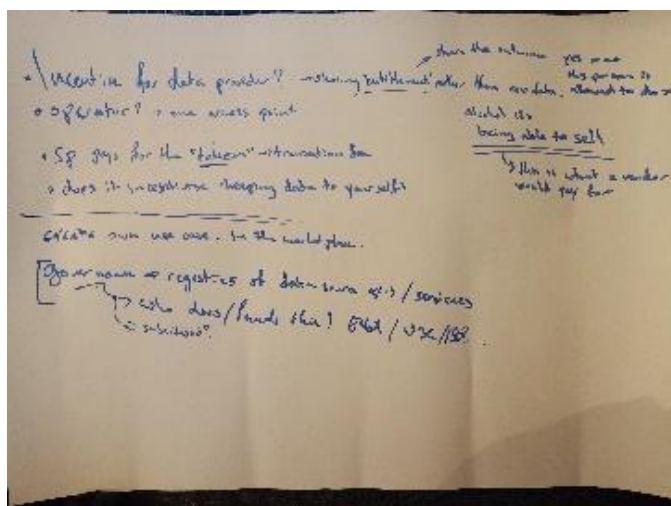 • Incentive for data provider? → sharing "entitlement" rather than raw data.
share the outcome yes or no
this person is
allowed to do so
• operator? → one access point
• SP pays for the "token" → transaction fee
• does it incentivise keeping data to yourself?
being able to sell
↳ this is what a vendor
would pay for
create own use case. In the marketplace.
Governance → registries of data source / services
→ who does / funds this?